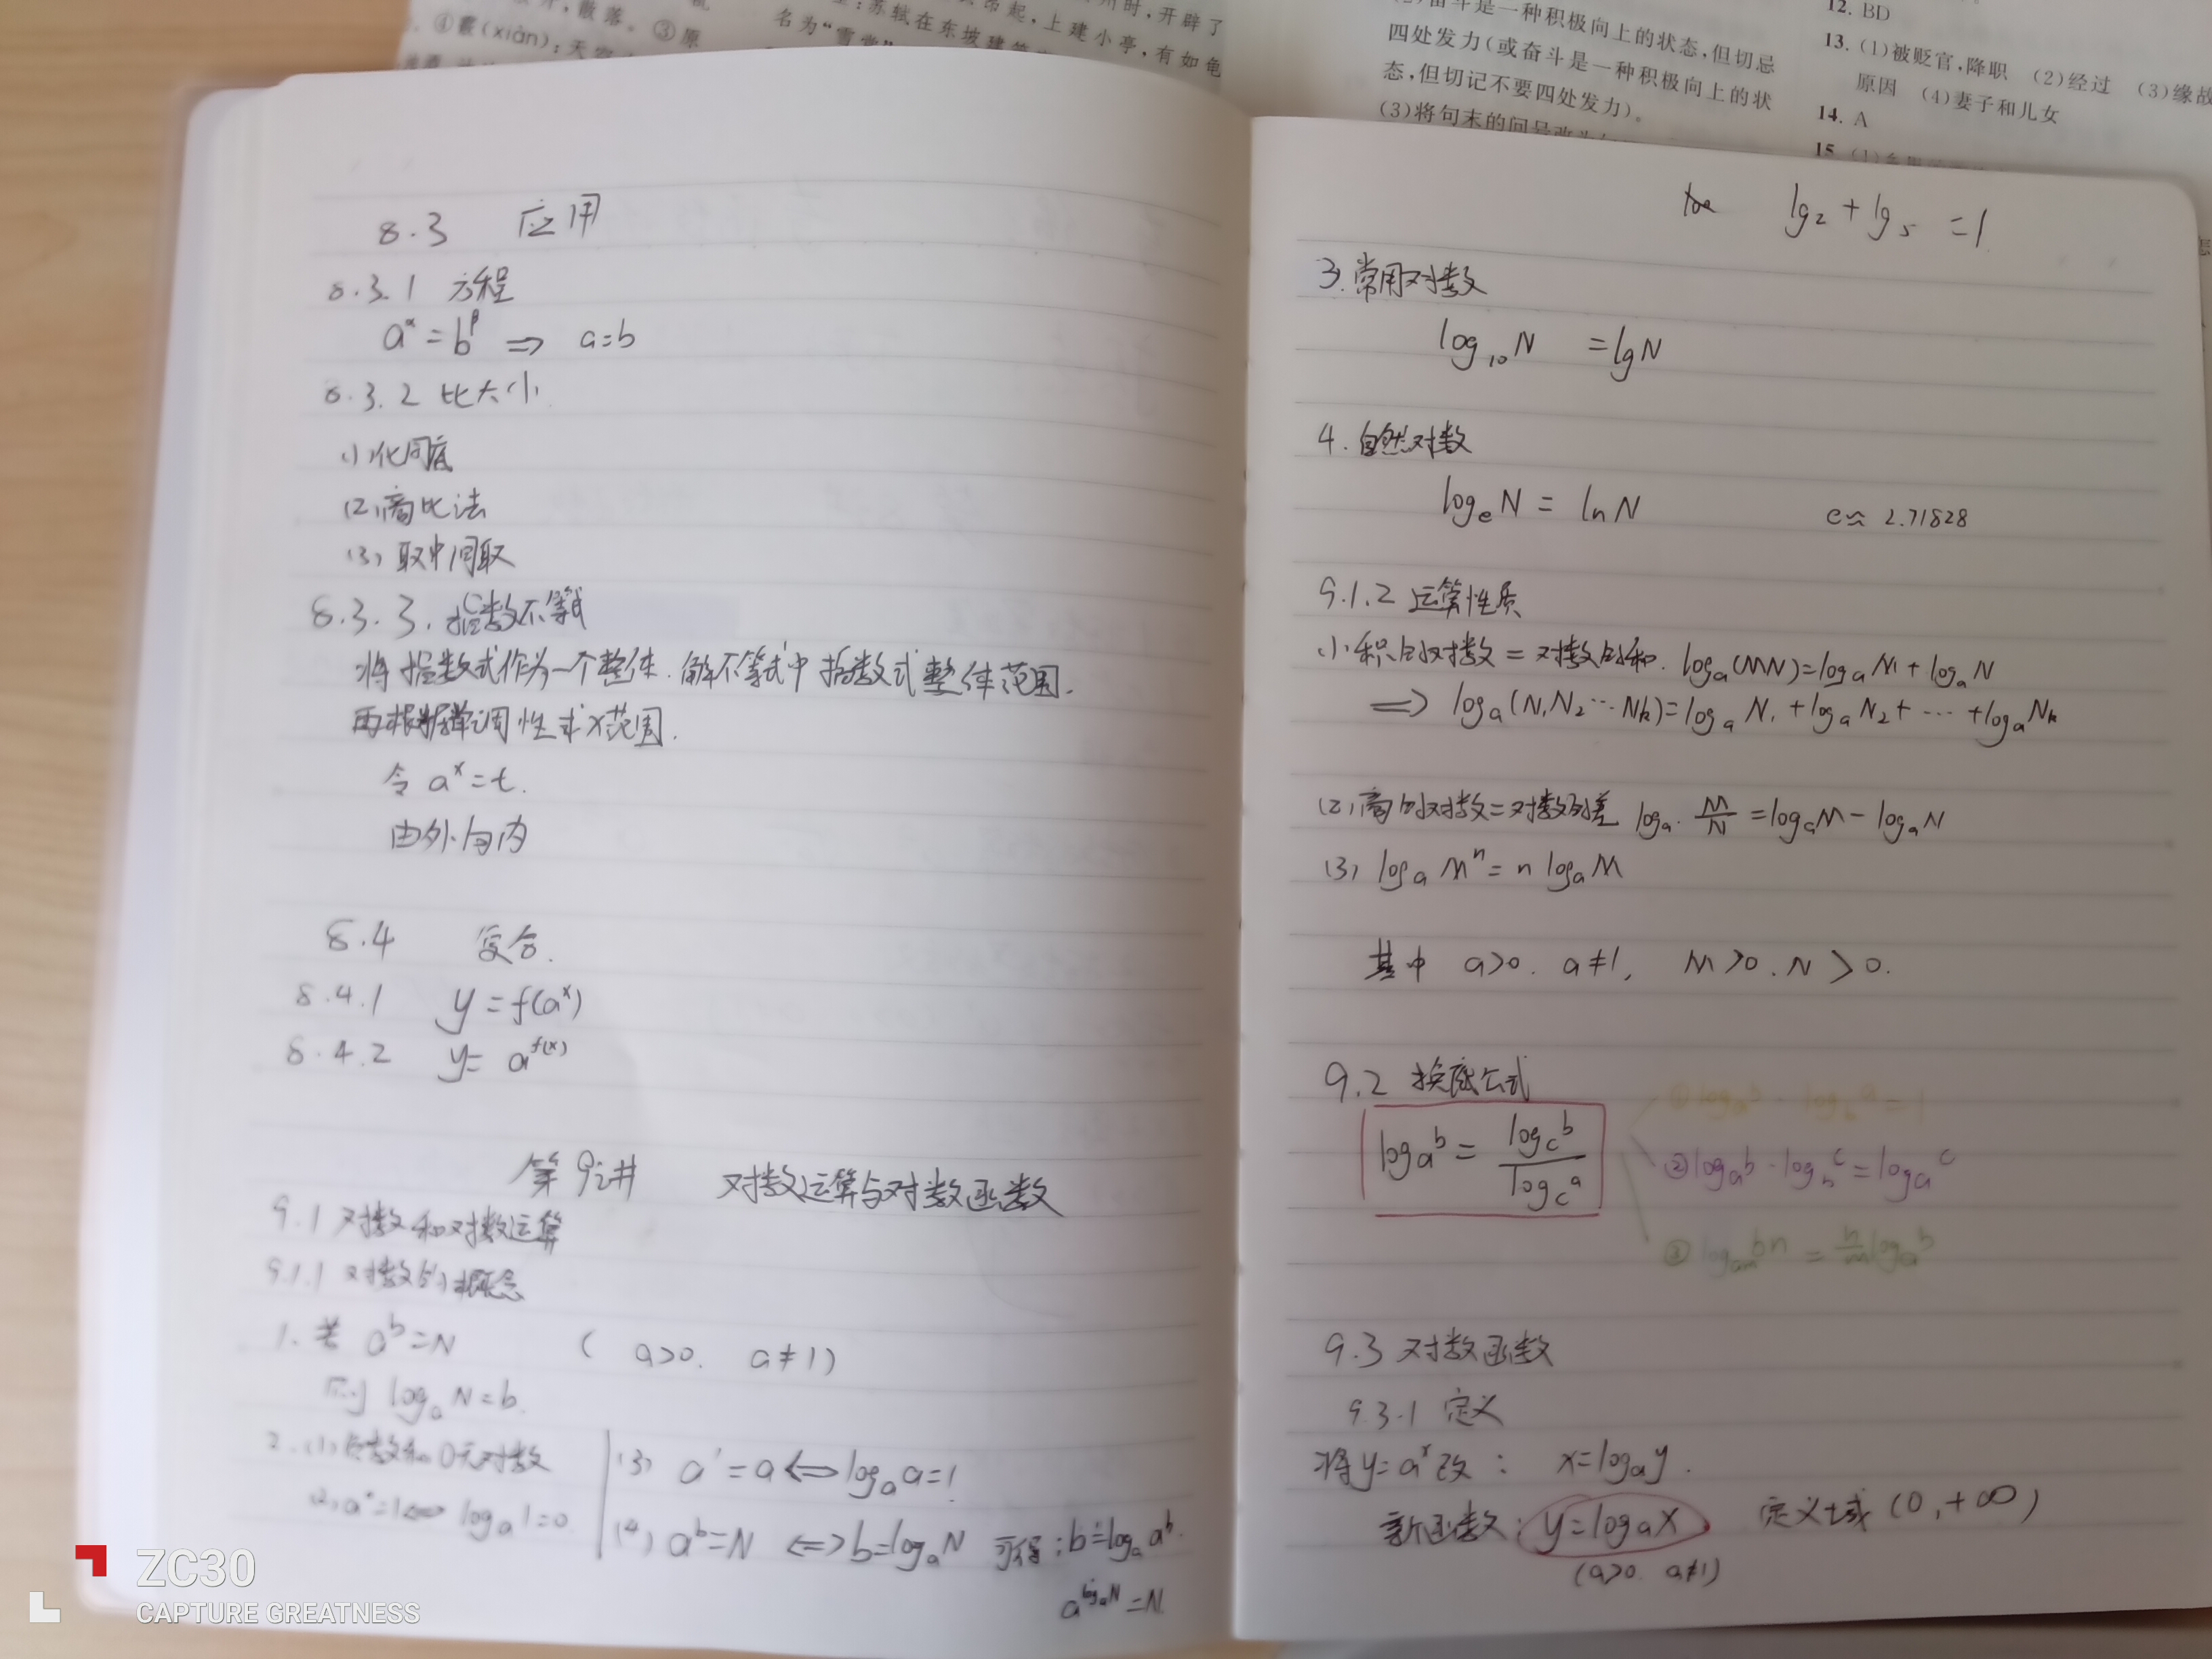 ④霰(xiàn)：天空
，散落。③原
名为“雪堂”
：苏轼在东坡建筑
起，上建小亭，有如龟
时，开辟了
奋斗是一种积极向上的状态，但切忌
四处发力(或奋斗是一种积极向上的状
态，但切记不要四处发力)。
(3)将句末的问号改为
12. BD
13. (1)被贬官，降职 (2)经过 (3)缘故
原因 (4)妻子和儿女
14. A
15.
8.3 应用
8.3.1 方程
a^α = b^β ⇒ a=b
8.3.2 比大小
(1)化同底
(2)商比法
(3)取中间取
8.3.3. 指数不等式
将指数式作为一个整体.解不等式中指数式整体范围.
再根据单调性求x范围.
令 a^x=t.
由外向内
8.4 复合.
8.4.1 y=f(a^x)
8.4.2 y= a^f(x)
第9讲 对数运算与对数函数
9.1 对数和对数运算
9.1.1 对数的概念
1. 若 a^b=N ( a>0. a≠1)
则 log_a N=b.
2. (1)负数和0无对数
(2) a°=1⇔ log_a 1=0
(3) a^1=a⇔log_a a=1
(4) a^b=N ⇔b=log_a N 可得：b=log_a a^b.
a^log_a N=N
lg2+lg5 =1
3.常用对数
log_10 N =lgN
4.自然对数
log_e N = lnN e≈ 2.71828
9.1.2 运算性质
(1)积的对数=对数的和. log_a(MN)=log_a M+log_a N
⇒ log_a(N_1N_2…N_k)=log_a N_1+log_a N_2+…+log_a N_k
(2)商的对数=对数的差 log_a. M/N =log_a M-log_a N
(3) log_a M^n= n log_a M
其中 a>0. a≠1, M>0.N>0.
9.2 换底公式
log_a b= log_c b/log_c a
①log_a b · log_b a=1
②log_a b·log_b c=log_a c
③log_a^m b^n = n/m log_a b
9.3 对数函数
9.3.1 定义
将y=a^x改： x=log_a y.
新函数：y=log_a x 定义域(0,+∞)
(a>0. a≠1)
ZC30
CAPTURE GREATNESS